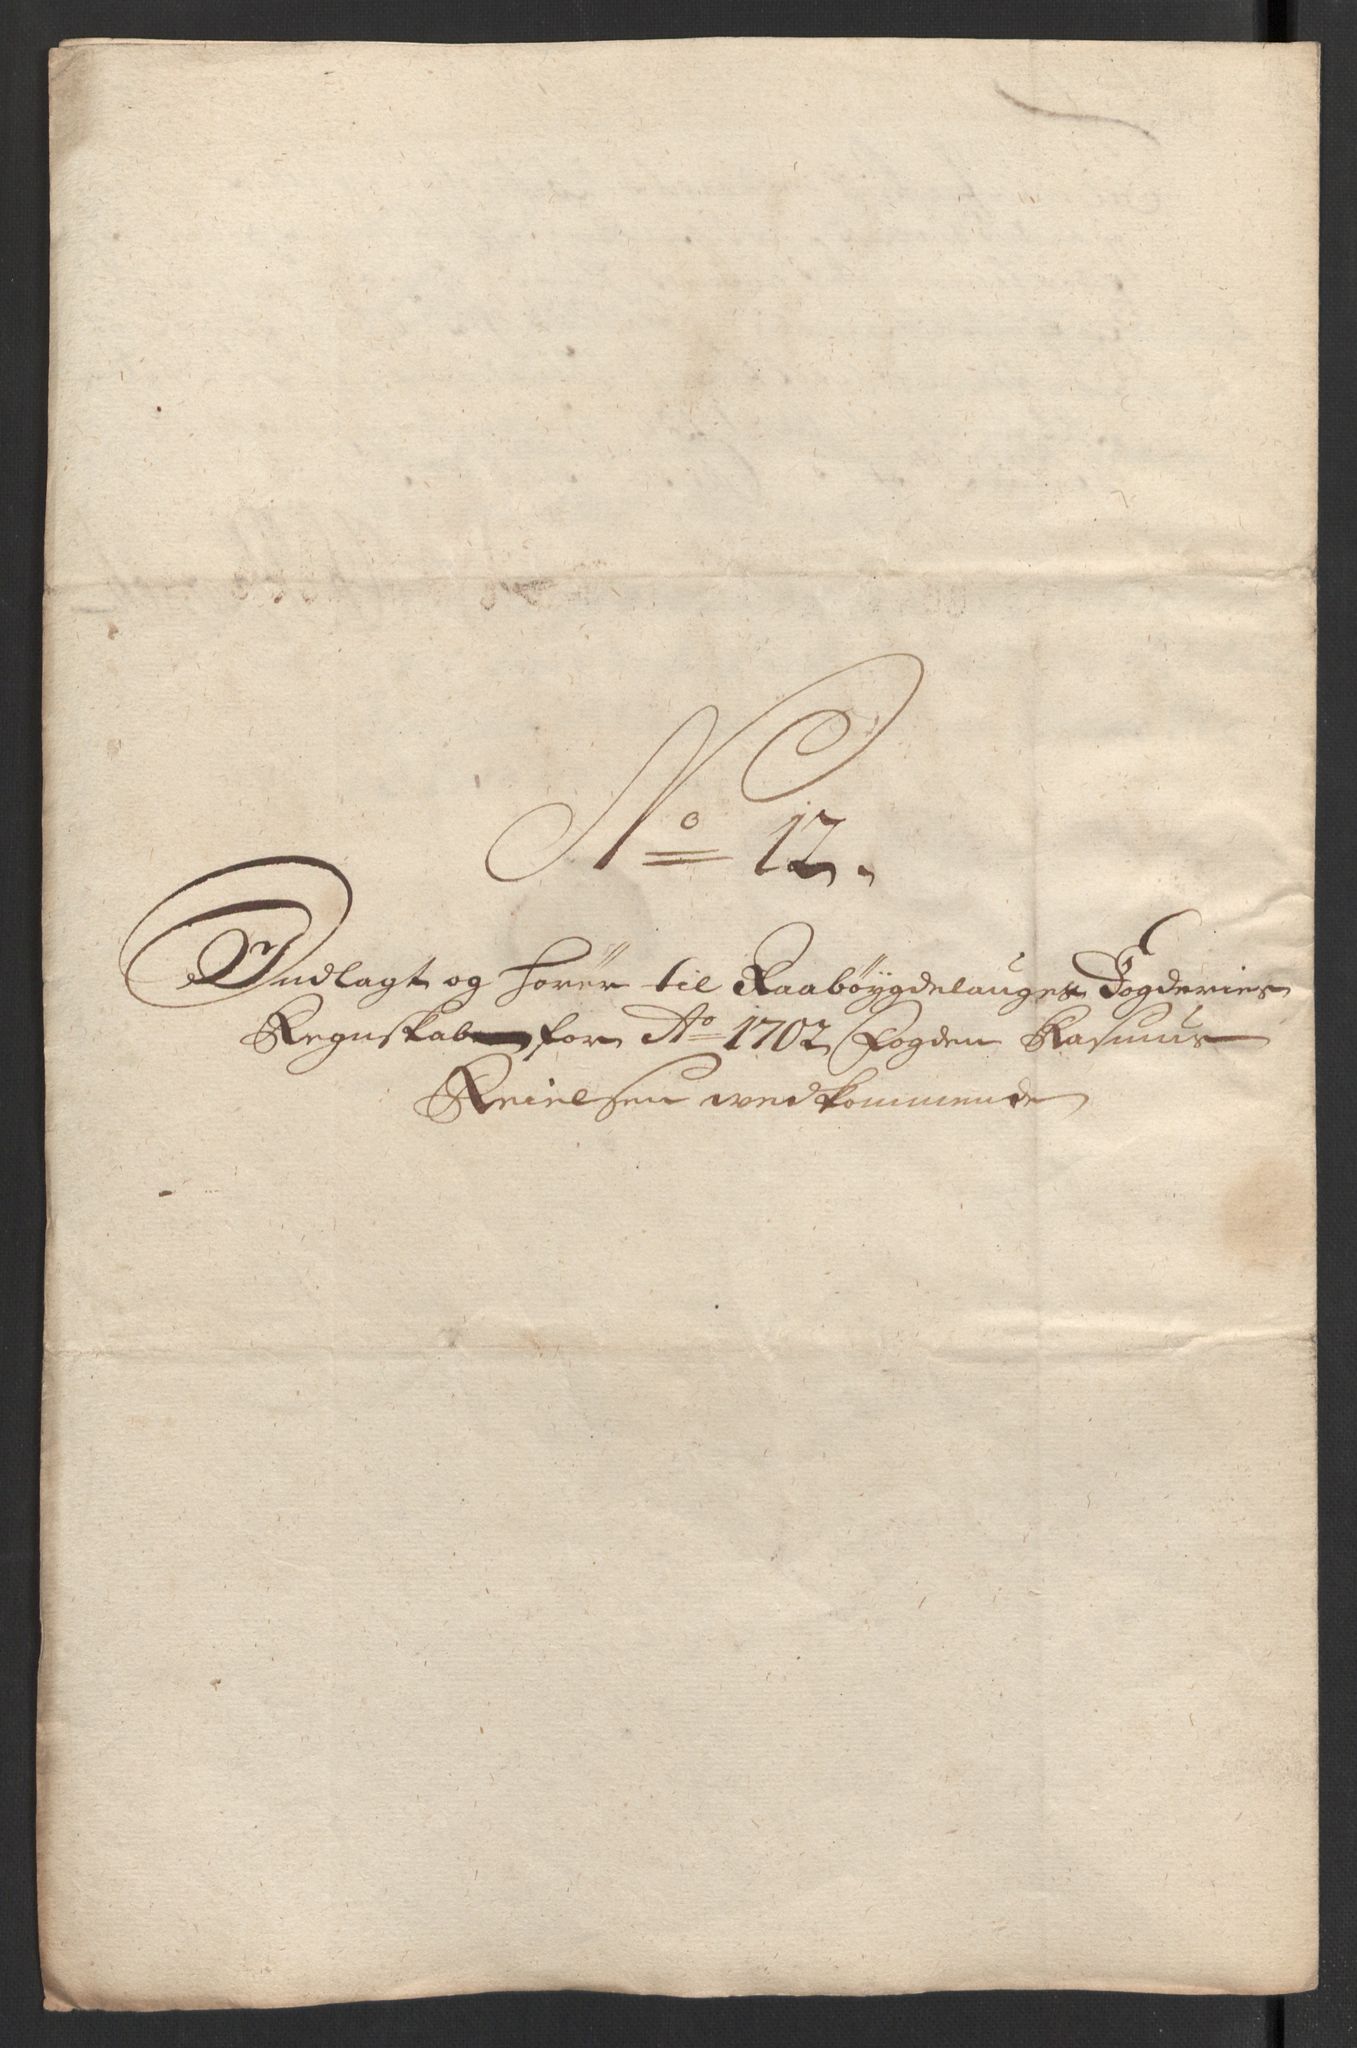 No 12.
Indlagt og hører til Raabøygdelauget Fogderies
Regnskab for Ao 1702 Fogden Rasmus
Reielsen wedkommende